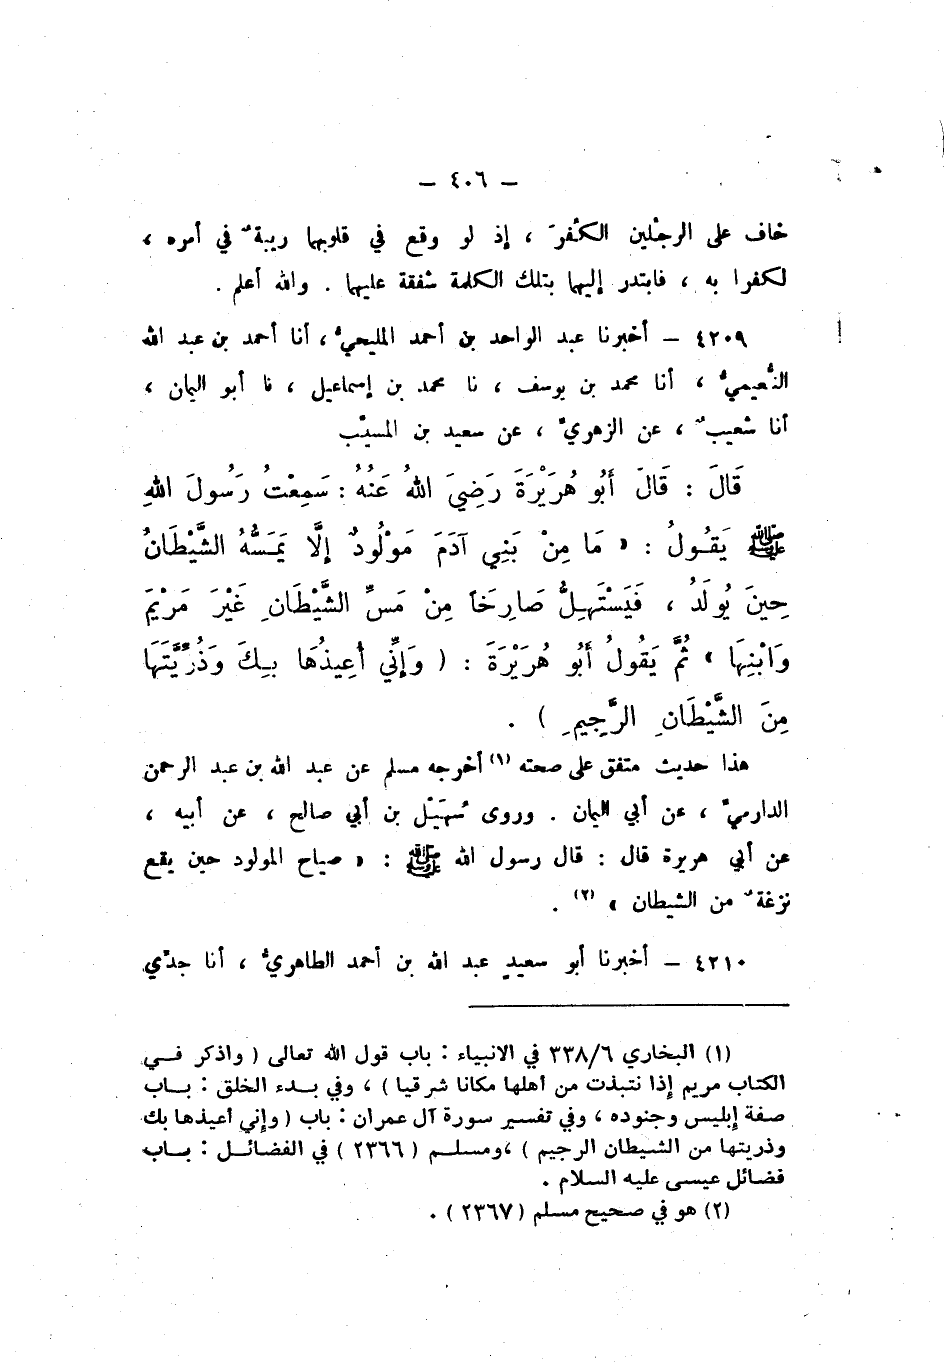 – ٤٠٦ –
خاف على الرجلين الكفرَ ، إذ لو وقع في قلوبهما ريبةٌ في أمره ،
لكفرا به ، فابتدر إليهما بتلك الكلمة شفقة عليهما . والله أعلم .
٤٢٠٩ – أخبرنا عبد الواحد بن أحمد المليحيُّ ، أنا أحمد بن عبد الله
النُّعيميُّ ، أنا محمد بن يوسف ، نا محمد بن إسماعيل ، نا أبو اليمان ،
أنا شعيبٌ ، عن الزهريِّ ، عن سعيد بن المسيّب
قَالَ : قَالَ أَبُو هُرَيْرَةَ رَضِيَ اللهُ عَنْهُ : سَمِعْتُ رَسُولَ اللهِ
ﷺ يَقُولُ : « مَا مِنْ بَنِي آدَمَ مَوْلُودٌ إلَّا يَمَسُّهُ الشَّيْطَانُ
حِينَ يُولَدُ ، فَيَسْتَهِلُّ صَارِخَاً مِنْ مَسِّ الشَّيْطَانِ غَيْرَ مَرْيَمَ
وَابْنِهَا » ثُمَّ يَقُولُ أَبُو هُرَيْرَةَ : ( وَإِنِّي أُعِيذُهَا بِكَ وَذُرِّيَّتَهَا
مِنَ الشَّيْطَانِ الرَّجِيمِ ) .
هذا حديث متفق على صحته (١) أخرجه مسلم عن عبد الله بن عبد الرحمن
الدارميِّ ، عن أبي اليمان . وروى سُهَيْل بن أبي صالح ، عن أبيه ،
عن أبي هريرة قال : قال رسول الله ﷺ : « صياح المولود حين يقع
نزغةٌ من الشيطان » (٢) .
٤٢١٠ – أخبرنا أبو سعيدٍ عبد الله بن أحمد الطاهريُّ ، أنا جدّي
(١) البخاري ٣٣٨/٦ في الانبياء : باب قول الله تعالى ( واذكر فـي
الكتاب مريم إذا نتبذت من أهلها مكانا شرقيا ) ، وفي بـدء الخلق : بـاب
صفة إبليس وجنوده ، وفي تفسير سورة آل عمران : باب ( وإني أعيذها بك
وذريتها من الشيطان الرجيم ) ،ومسلـم ( ٢٣٦٦ ) في الفضائـل : بـاب
فضائل عيسى عليه السلام .
(٢) هو في صحيح مسلم ( ٢٣٦٧ ) .